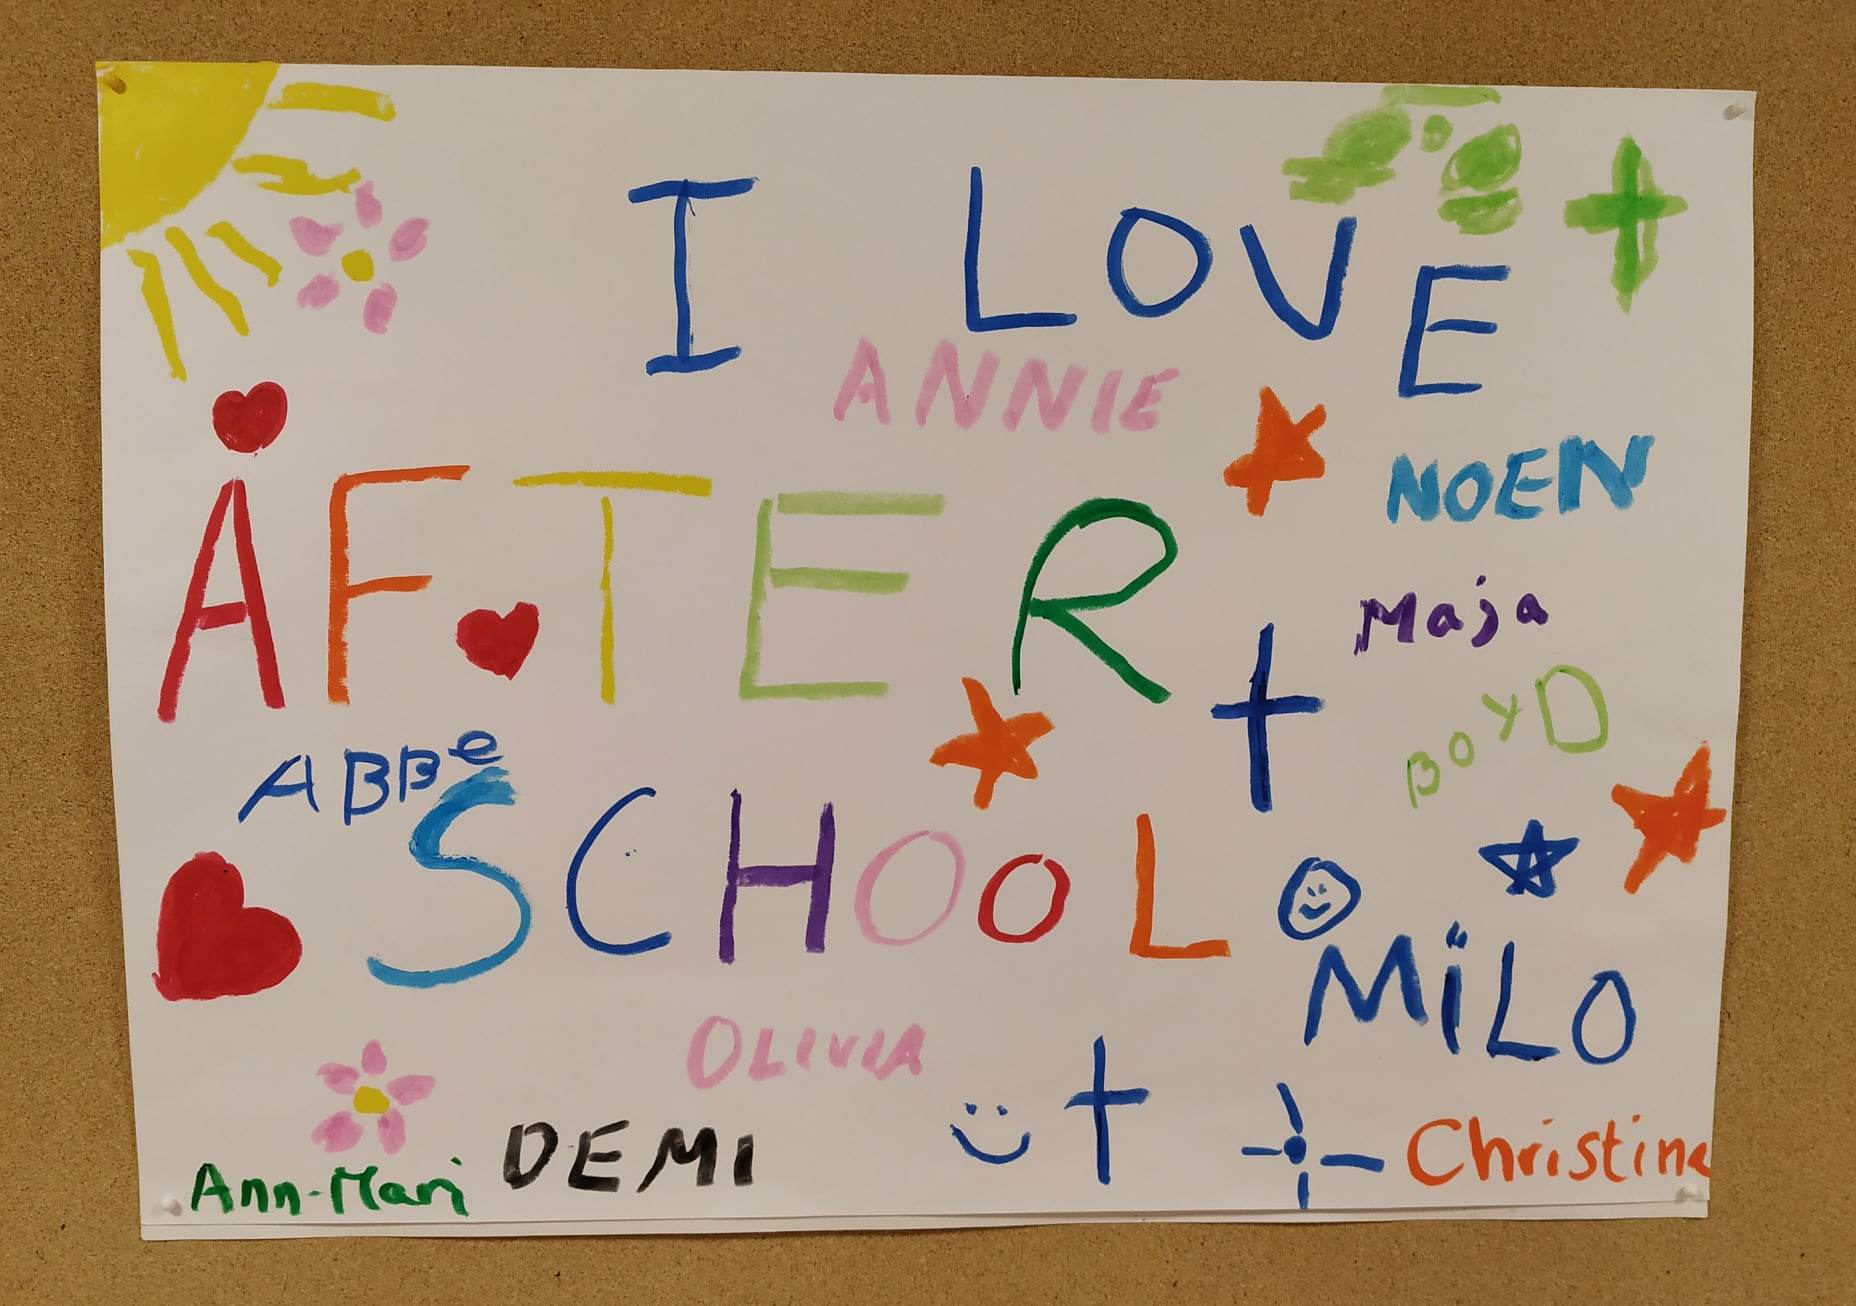 I LOVE
ANNIE
NOEN
AFTER
Maja
BOYD
ABBe
SCHOOL
MiLO
OLIVIA
DEMI
Christine
Ann-Mari